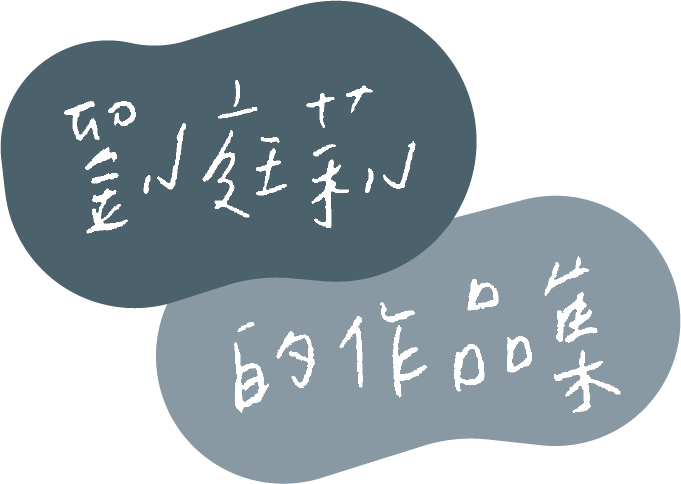 劉庭莉
的作品集